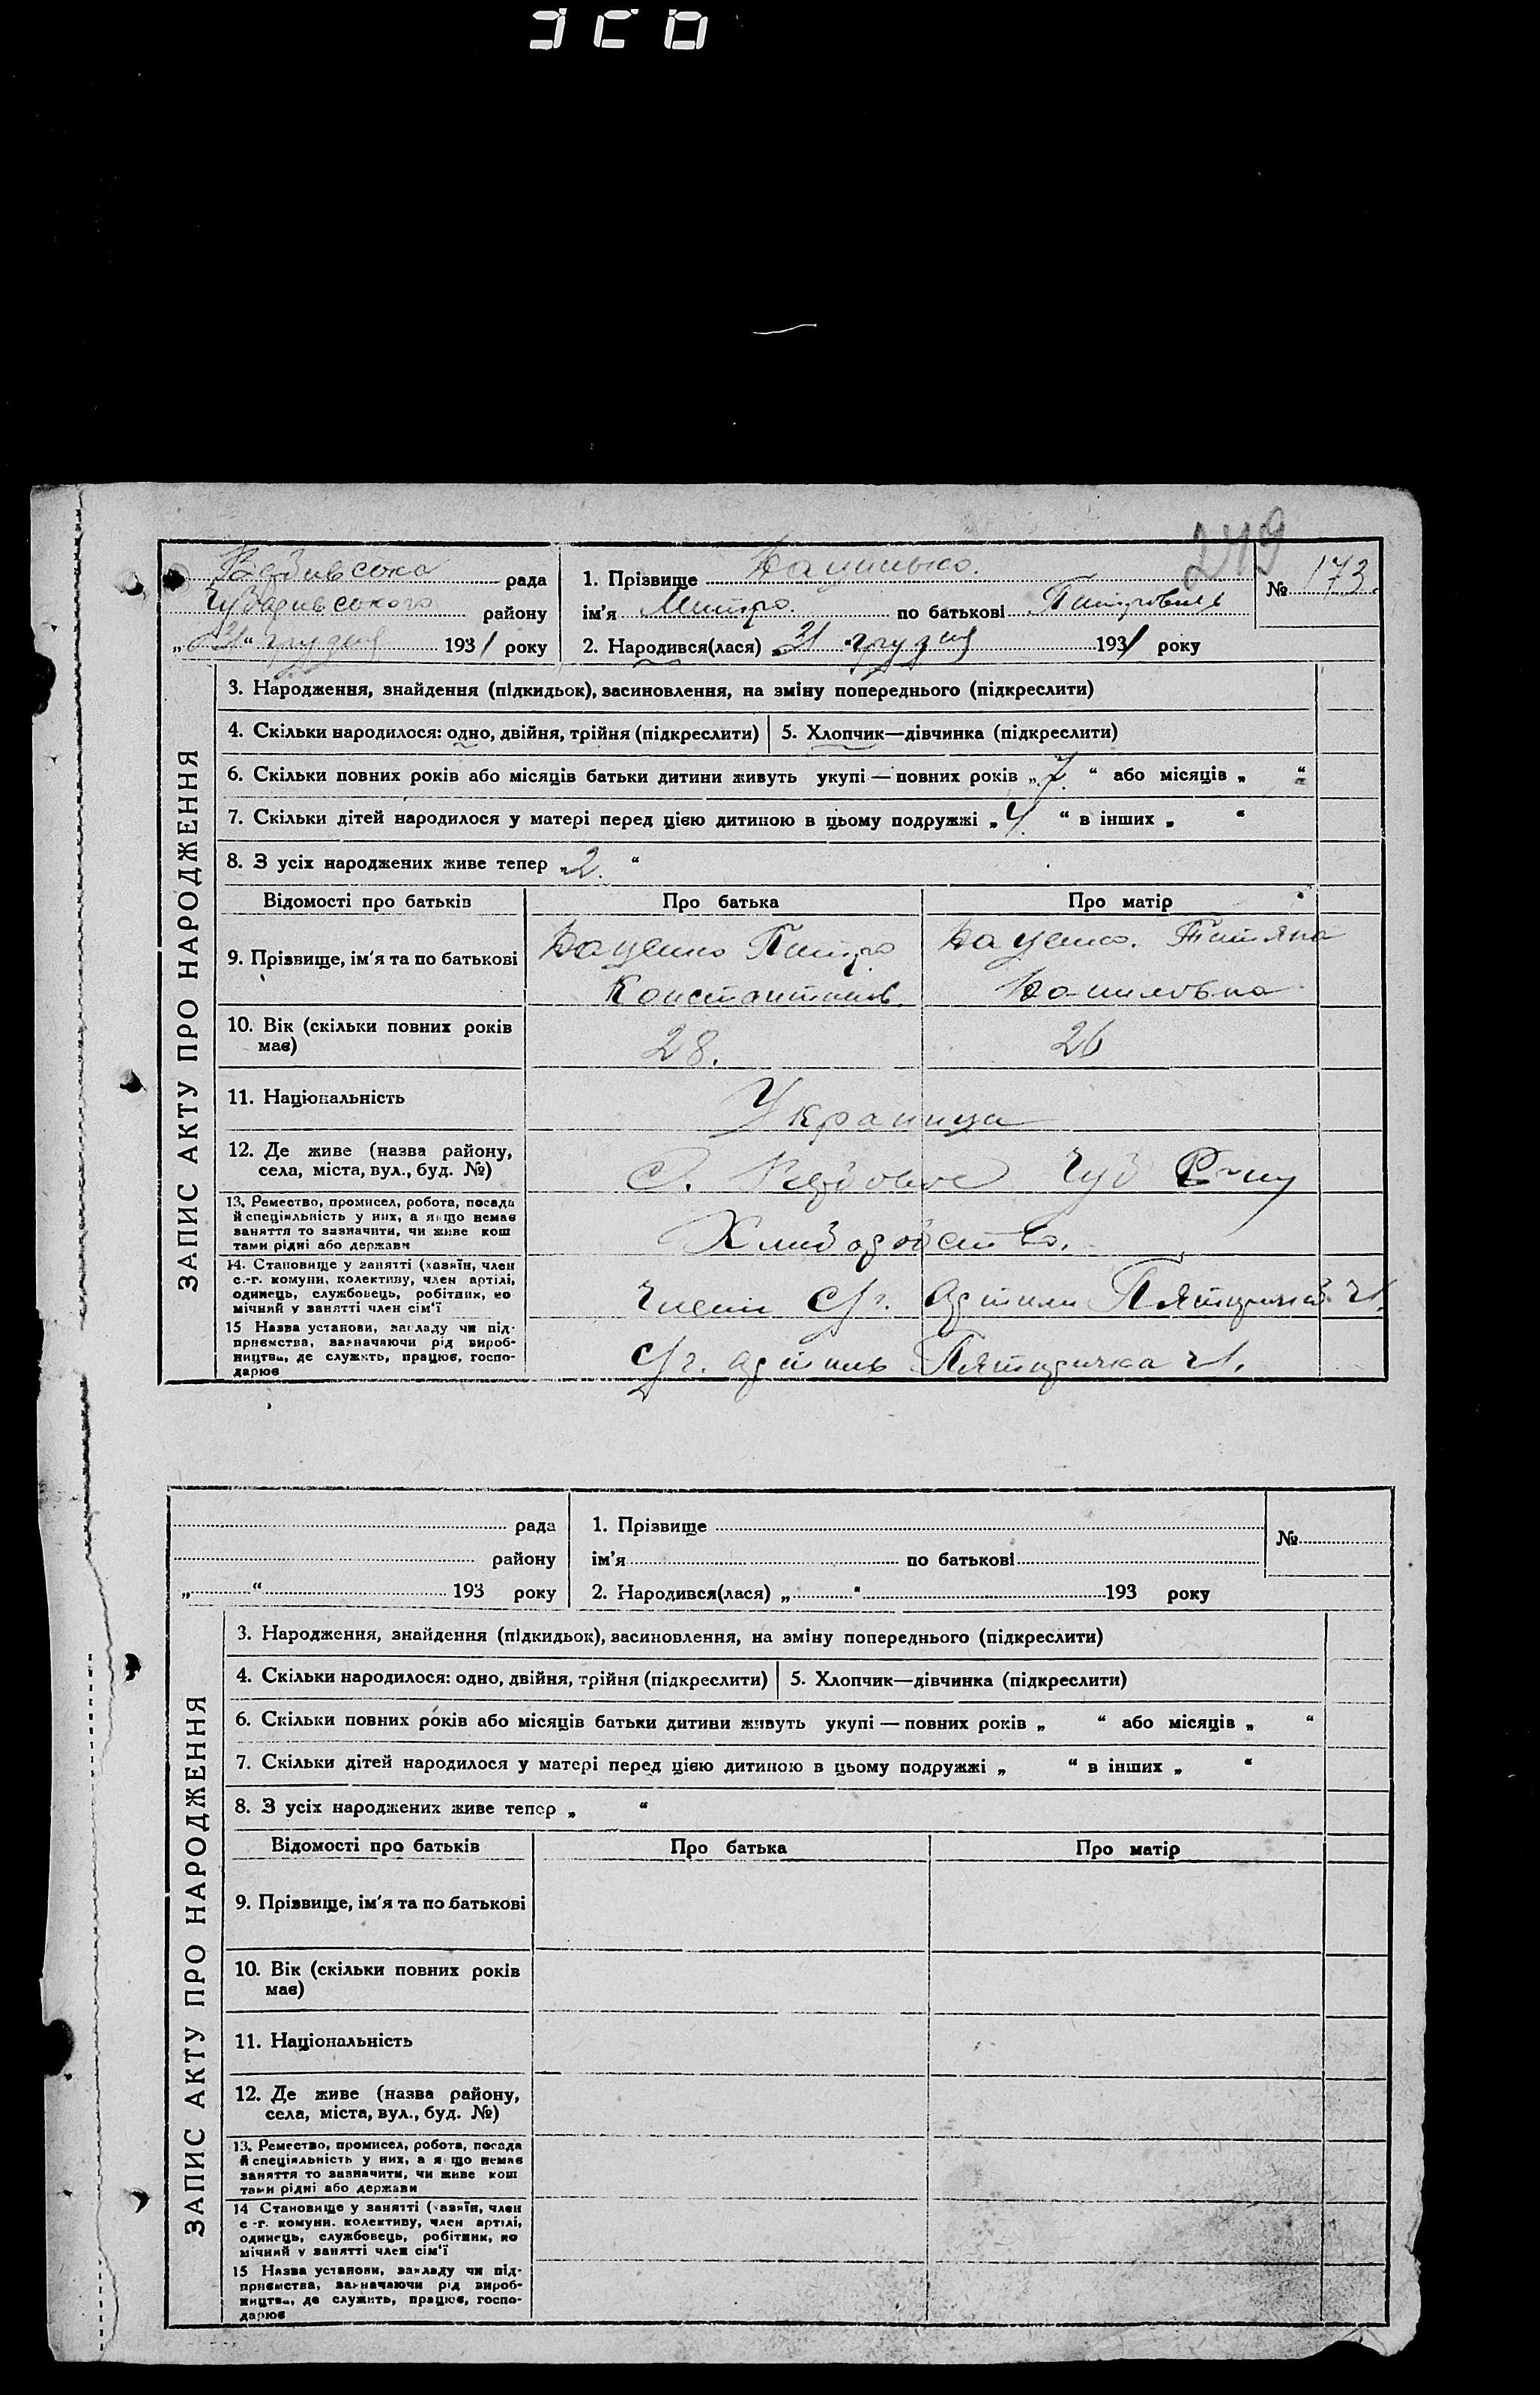 249
рада
району
„31“ грудня 1931 року
1. Прізвище
ім'я Митро. по батькові Питрович
2. Народився(лася) „31“ грудня 1931 року
№ 173.
ЗАПИС АКТУ ПРО НАРОДЖЕННЯ
3. Народження, знайдення (підкидьок), засиновлення, на зміну попереднього (підкреслити)
4. Скільки народилося: одно, двійня, трійня (підкреслити) 5. Хлопчик—дівчинка (підкреслити)
6. Скільки повних років або місяців батьки дитини живуть укупі — повних років „7.“ або місяців „ “
7. Скільки дітей народилося у матері перед цією дитиною в цьому подружжі „4.“ в інших „ “
8. З усіх народжених живе тепер „2.“
Відомості про батьків Про батька Про матір
9. Прізвище, ім'я та по батькові Даценко Питро Даценко. Татяна
Константинов.
10. Вік (скільки повних років 28. 26
має)
11. Національність Украинци
12. Де живе (назва району, С.
села, міста, вул., буд. №)
13. Ремество, промисел, робота, посада Хлиборобство.
й спеціяльність у них, а якщо немає
заняття то зазначити, чи живе кош
тами рідні або держави
14. Становище у занятті (хазяїн, член Члени С/г. Артили
с.-г. комуни, колективу, член артілі,
одинець, службовець, робітник, по
мічний у занятті член сім'ї
15 Назва установи, закладу чи під- С/г. артиль Пятидичка
приємства, зазначаючи рід вироб-
ництва, де служить, працює, госпо-
дарює
рада
району
„ “ 193 року
1. Прізвище
ім'я по батькові
2. Народився(лася) „ “ 193 року
№
ЗАПИС АКТУ ПРО НАРОДЖЕННЯ
3. Народження, знайдення (підкидьок), засиновлення, на зміну попереднього (підкреслити)
4. Скільки народилося: одно, двійня, трійня (підкреслити) 5. Хлопчик—дівчинка (підкреслити)
6. Скільки повних років або місяців батьки дитини живуть укупі — повних років „ “ або місяців „ “
7. Скільки дітей народилося у матері перед цією дитиною в цьому подружжі „ “ в інших „ “
8. З усіх народжених живе тепер „ “
Відомості про батьків Про батька Про матір
9. Прізвище, ім'я та по батькові
10. Вік (скільки повних років
має)
11. Національність
12. Де живе (назва району,
села, міста, вул., буд. №)
13. Ремество, промисел, робота, посада
й спеціяльність у них, а якщо немає
заняття то зазначити, чи живе кош
тами рідні або держави
14 Становище у занятті (хазяїн, член
с-г. комуни. колективу, член артілі,
одинець, службовець, робітник, по
мічний у занятті член сім'ї
15 Назва установи, закладу чи під-
приємства, зазначаючи рід вироб-
ництва, де служить, працює, госпо-
дарює